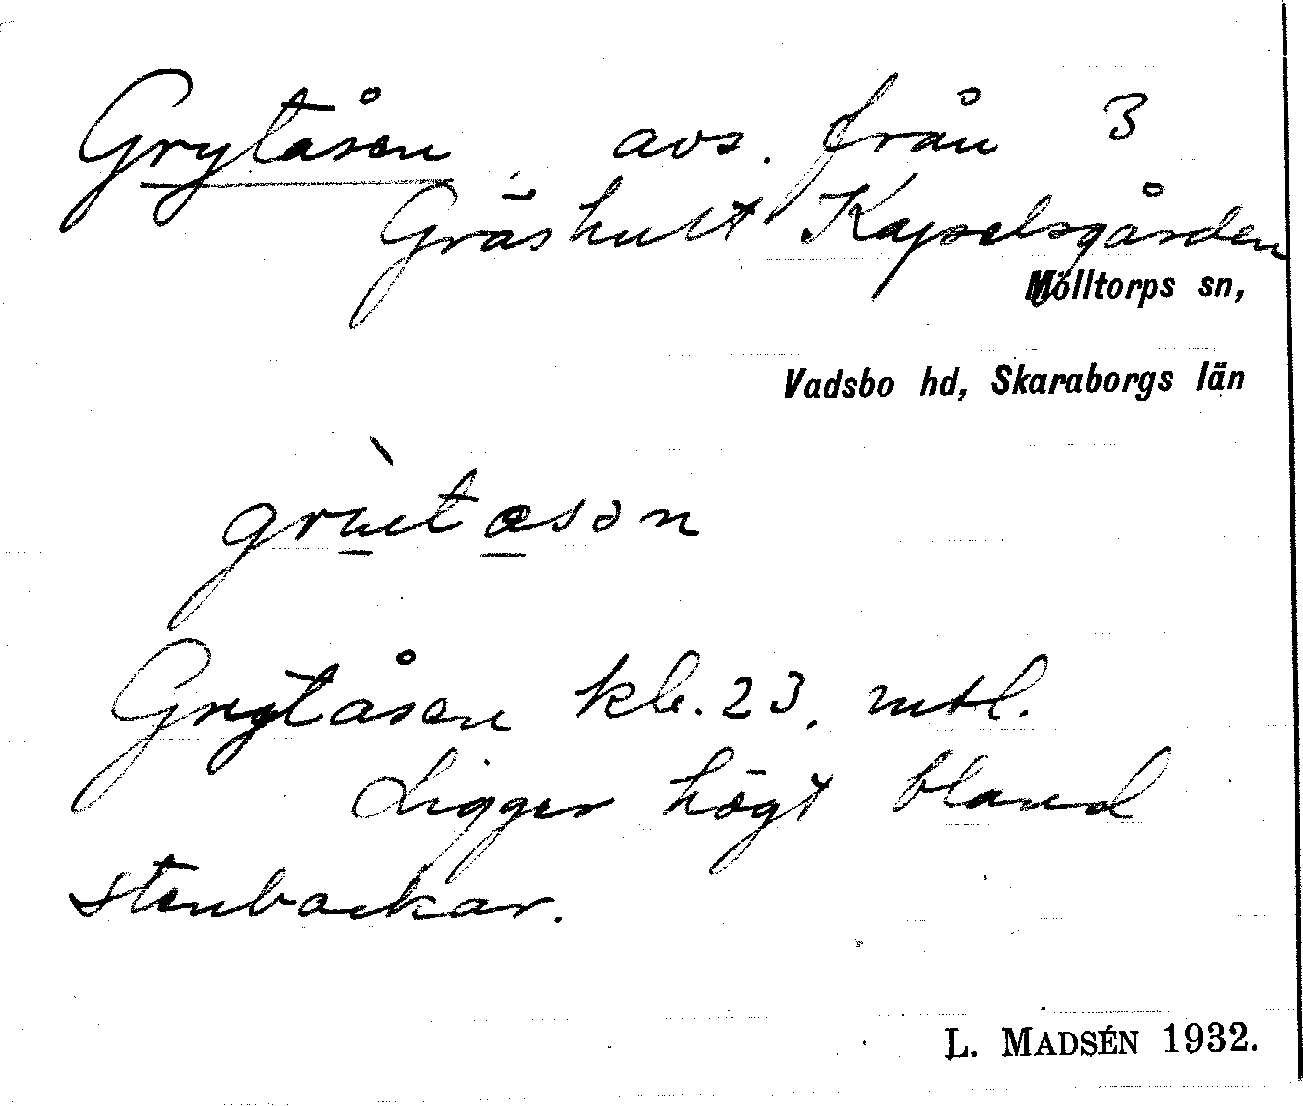 Grytåsen, avs. från 3
Gräshult Kapelsgården
Mölltorps sn,
Vadsbo hd, Skaraborgs län
Grytåsen kb. 23. mtl.
Ligger högt bland
stenbackar.
L. MADSÉN 1932.